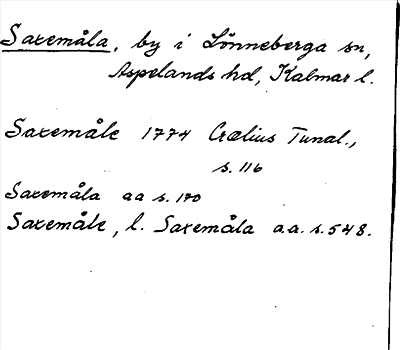 Saxemåla, by i Lönneberga sn,
Aspelands hd, Kalmar l.
Saxemåle 1774 Crælius Tunal.,
s. 116
Saxemåla aa s. 170
Saxemåle, l. Saxemåla a.a. s. 548.